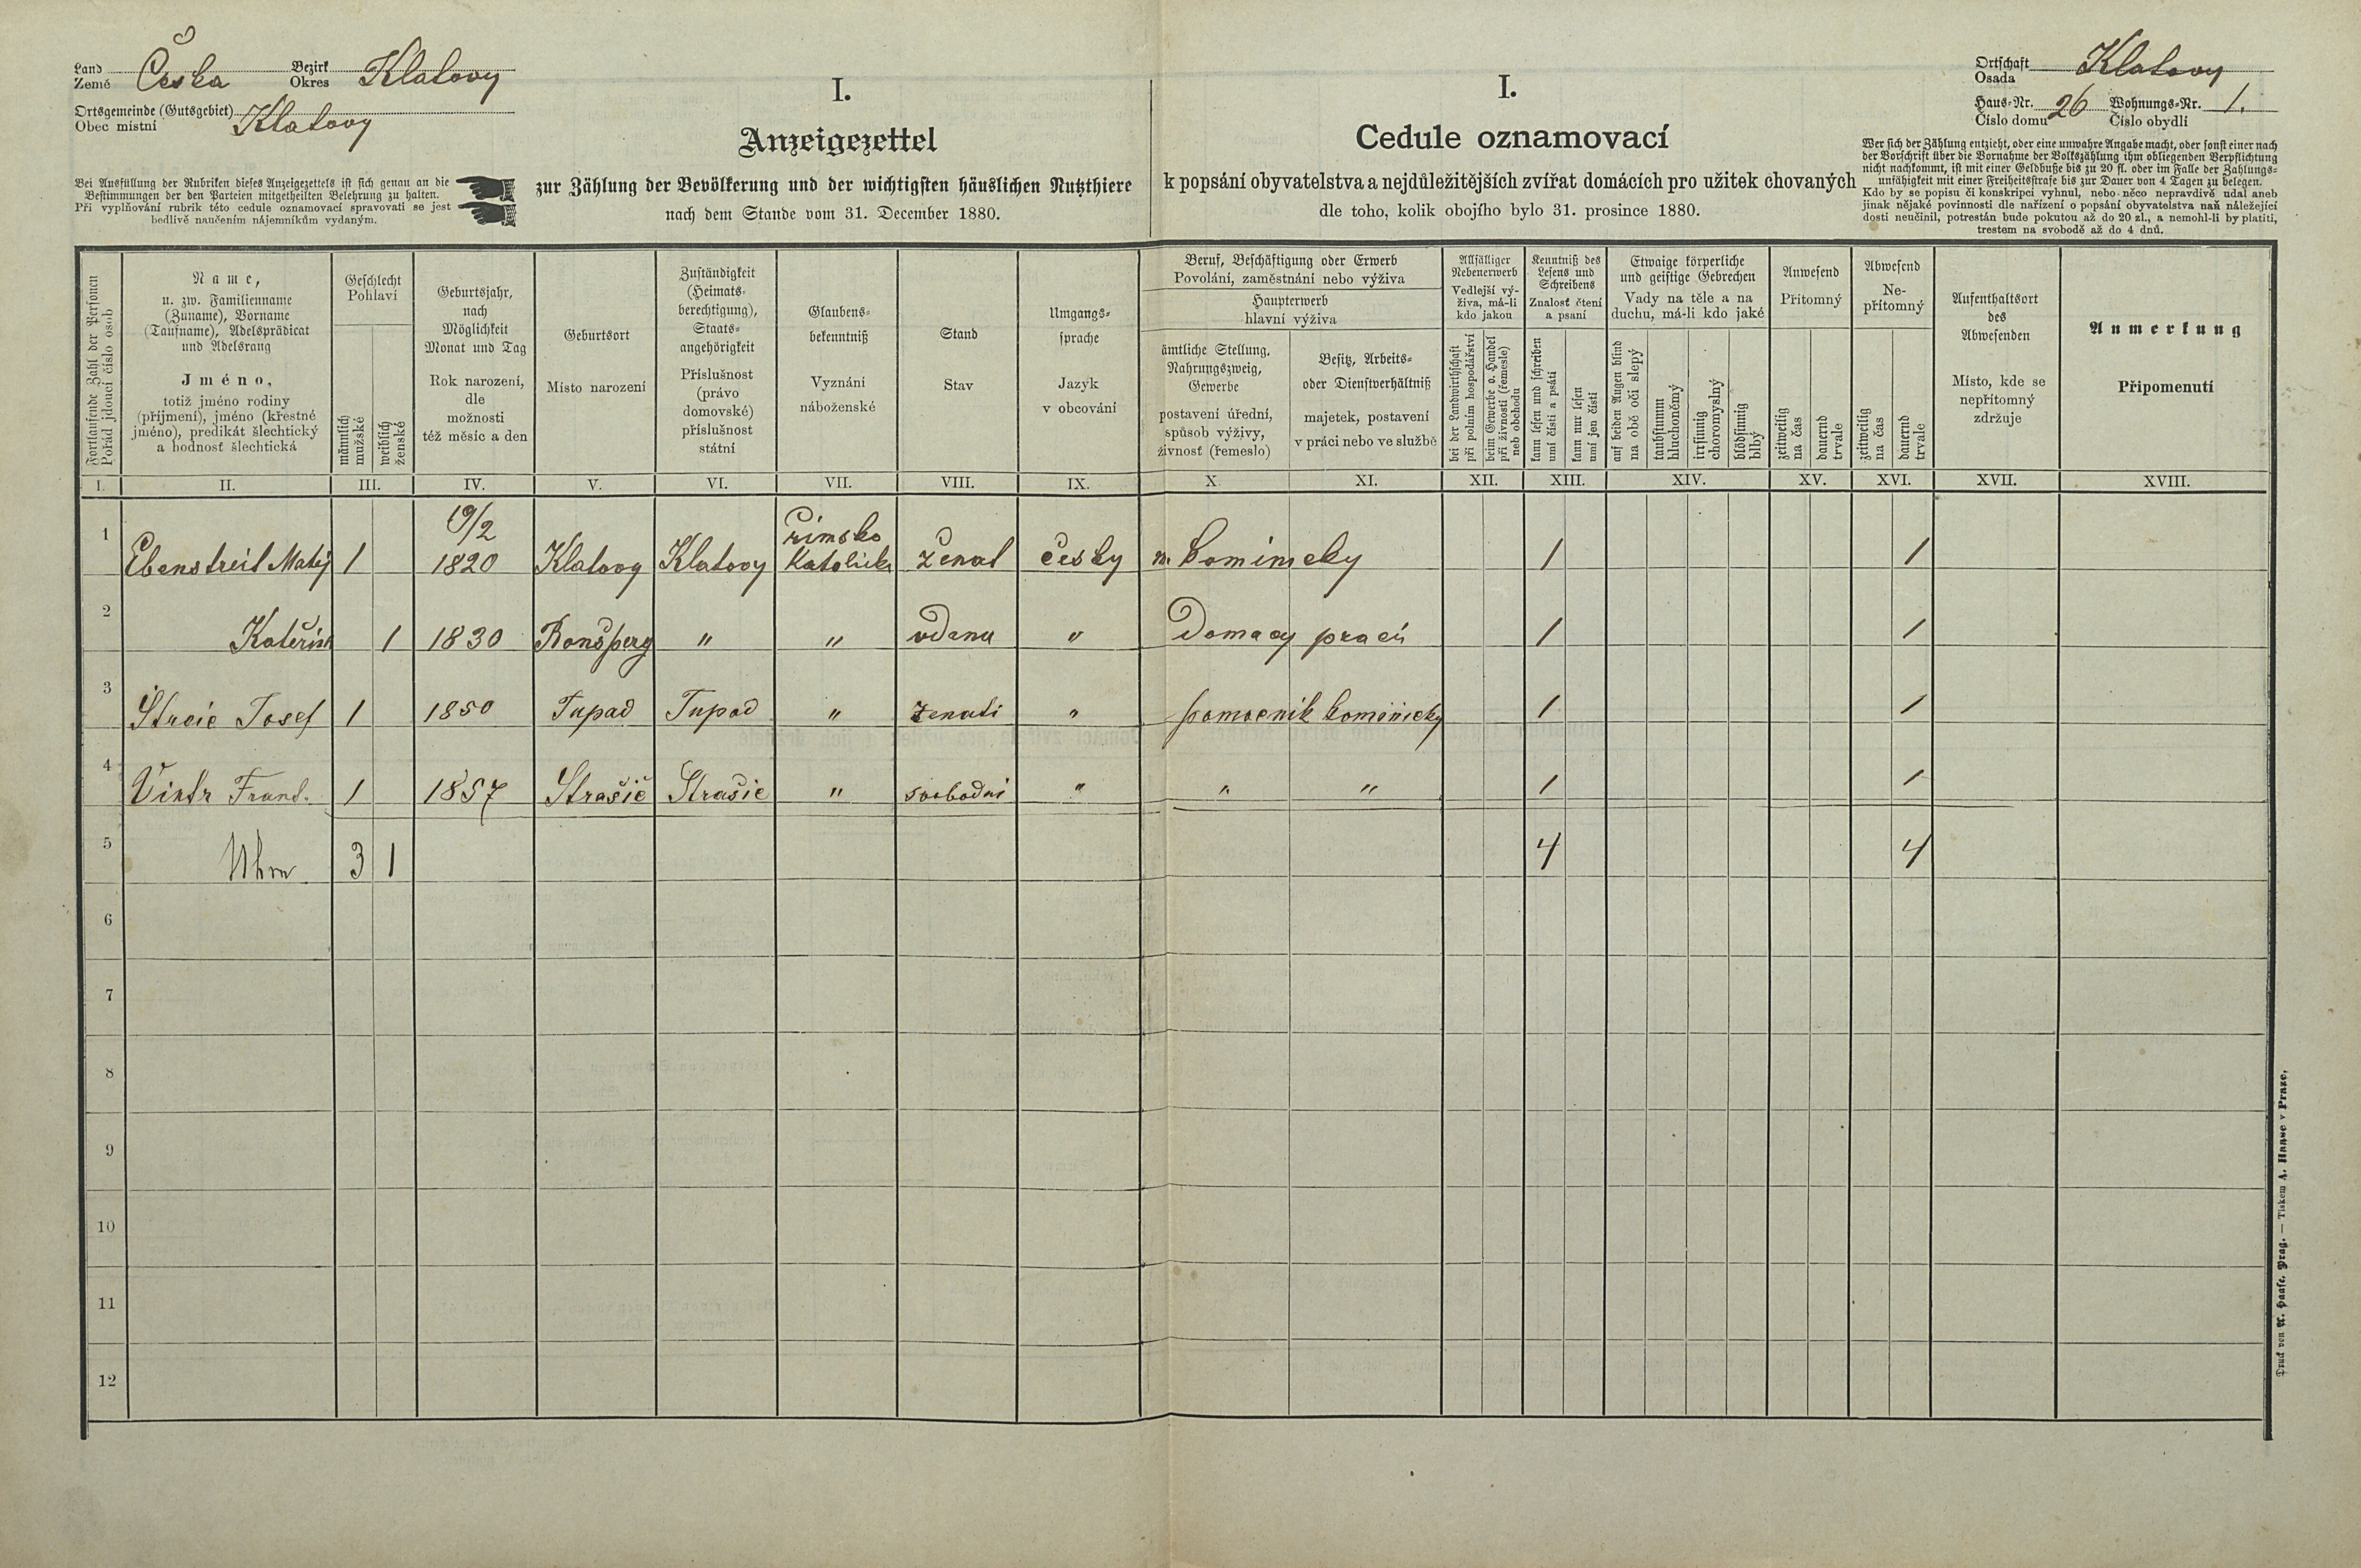 Land Česka Bezirk Klatovy
Země Okres
Ortsgemeinde (Gutsgebiet) Klatovy
Obec místní
Bei Ausfüllung der Rubriken dieses Anzeigezettels ist sich genau an die
Bestimmungen der den Parteien mitgetheilten Belehrung zu halten.
Při vyplňování rubrik této cedule oznamovací spravovati se jest
bedlivě naučením nájemníkům vydaným.
I.
Anzeigezettel
zur Zählung der Bevölkerung und der wichtigsten häuslichen Nutzthiere
nach dem Stande vom 31. December 1880.
I.
Cedule oznamovací
k popsání obyvatelstva a nejdůležitějších zvířat domácích pro užitek chovaných
dle toho, kolik obojího bylo 31. prosince 1880.
Ortschaft Klatovy
Osada
Haus-Nr. 26 Wohnungs-Nr. 1.
Číslo domu Číslo obydlí
Wer sich der Zählung entzieht, oder eine unwahre Angabe macht, oder sonst einer nach
der Vorschrift über die Vornahme der Volkszählung ihm obliegenden Verpflichtung
nicht nachkommt, ist mit einer Geldbuße bis zu 20 fl. oder im Falle der Zahlungs-
unfähigkeit mit einer Freiheitsstrafe bis zur Dauer von 4 Tagen zu belegen.
Kdo by se popisu či konskripci vyhnul, nebo něco nepravdivě udal aneb
jinak nějaké povinnosti dle nařízení o popsání obyvatelstva naň náležející
dosti neučinil, potrestán bude pokutou až do 20 zl., a nemohl-li by platiti,
trestem na svobodě až do 4 dnů.
Fortlaufende Zahl der Personen
Pořád jdoucí číslo osob
Name,
u. zw. Familienname
(Zuname), Vorname
(Taufname), Adelsprädicat
und Adelsrang
Jméno,
totiž jméno rodiny
(příjmení), jméno (křestné
jméno), predikát šlechtický
a hodnosť šlechtická
Geschlecht
Pohlaví
männlich
mužské
weiblich
ženské
Geburtsjahr,
nach
Möglichkeit
Monat und Tag
Rok narození,
dle
možnosti
též měsíc a den
Geburtsort
Místo narození
Zuständigkeit
(Heimats-
berechtigung),
Staats-
angehörigkeit
Příslušnost
(právo
domovské)
příslušnost
státní
Glaubens-
bekenntniß
Vyznání
náboženské
Stand
Stav
Umgangs-
sprache
Jazyk
v obcování
Beruf, Beschäftigung oder Erwerb
Povolání, zaměstnání nebo výživa
Haupterwerb
hlavní výživa
ämtliche Stellung,
Nahrungszweig,
Gewerbe
postavení úřední,
spůsob výživy,
živnosť (řemeslo)
Besitz, Arbeits-
oder Dienstverhältniß
majetek, postavení
v práci nebo ve službě
Allfälliger
Nebenerwerb
Vedlejší vý-
živa, má-li
kdo jakou
bei der Landwirthschaft
při polním hospodářství
beim Gewerbe o. Handel
při živnosti (řemesle)
neb obchodu
Kenntniß des
Lesens und
Schreibens
Znalosť čtení
a psaní
kann lesen und schreiben
umí čísti a psáti
kann nur lesen
umí jen čísti
Etwaige körperliche
und geistige Gebrechen
Vady na těle a na
duchu, má-li kdo jaké
auf beiden Augen blind
na obě oči slepý
taubstumm
hluchoněmý
irrsinnig
choromyslný
blödsinnig
blbý
Anwesend
Přítomný
zeitweilig
na čas
dauernd
trvale
Abwesend
Ne-
přítomný
zeitweilig
na čas
dauernd
trvale
Aufenthaltsort
des
Abwesenden
Místo, kde se
nepřítomný
zdržuje
Anmerkung
Připomenutí
I. II. III. IV. V. VI. VII. VIII. IX. X. XI. XII. XIII. XIV. XV. XVI. XVII. XVIII.
19/2 římsko
1 Ebenstreit Matěj 1 1820 Klatovy Klatovy Katolick ženat česky m. kominicky 1 1
2 Kateřin 1 1830 Ronšperg " " vdana " Domacy praci 1 1
3 Streic Josef 1 1850 Tupad Tupad " ženati " pomocnik kominicky 1 1
4 Vintr Frant. 1 1857 Strašič Strašic " svobodni " " " 1 1
5 Uhrn 3 1 4 4
6
7
8
9
10
11
12
Druck von A. Haase, Prag. — Tiskem A. Haase v Praze.